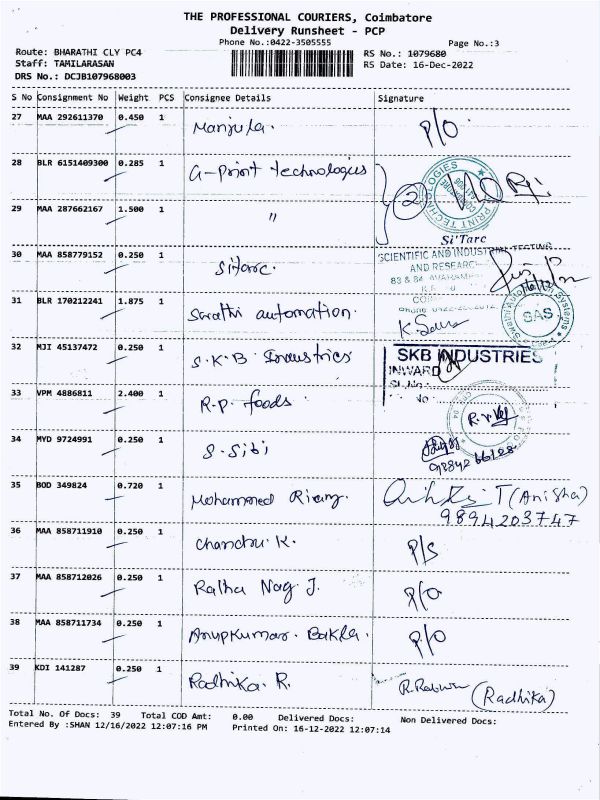 THE PROFESSIONAL COURIERS, Coimbatore
Delivery Runsheet - PCP
Phone No.:0422-3505555
Page No.:3
Route: BHARATHI CLY PC4
RS No.: 1079680
Staff: TAMILARASAN
RS Date: 16-Dec-2022
DRS No.: DCJB107968003
S No Consignment No Weight PCS Consignee Details Signature
27 MAA 292611370 0.450 1 Manjula. P/O
28 BLR 6151409300 0.285 1 G-Print technologies 2
PRINT TECHNOLOGIES
29 MAA 287662167 1.500 1 "
Si'Tarc
SCIENTIFIC AND INDUSTRIAL TESTING
AND RESEARCH
30 MAA 858779152 0.250 1 Sitarc.
83 & 84
31 BLR 170212241 1.875 1 Sarathi automation.
SAS
32 MJI 45137472 0.250 1 S.K.B Industries
SKB INDUSTRIES
INWARD
Sl.No
33 VPM 4886811 2.400 1 R.P. foods
34 MYD 9724991 0.250 1 S. Sibi
35 BOD 349824 0.720 1 Mohammed T (Anisha)
9894203747
36 MAA 858711910 0.250 1 Chandru K. P/S
37 MAA 858712026 0.250 1 Ratha Nag J. P/O
38 MAA 858711734 0.250 1 Anupkumar. Bakla. P/O
39 KDI 141287 0.250 1 Radhika. R. (Radhika)
Total No. Of Docs: 39 Total COD Amt: 0.00 Delivered Docs: Non Delivered Docs:
Entered By :SHAN 12/16/2022 12:07:16 PM Printed On: 16-12-2022 12:07:14